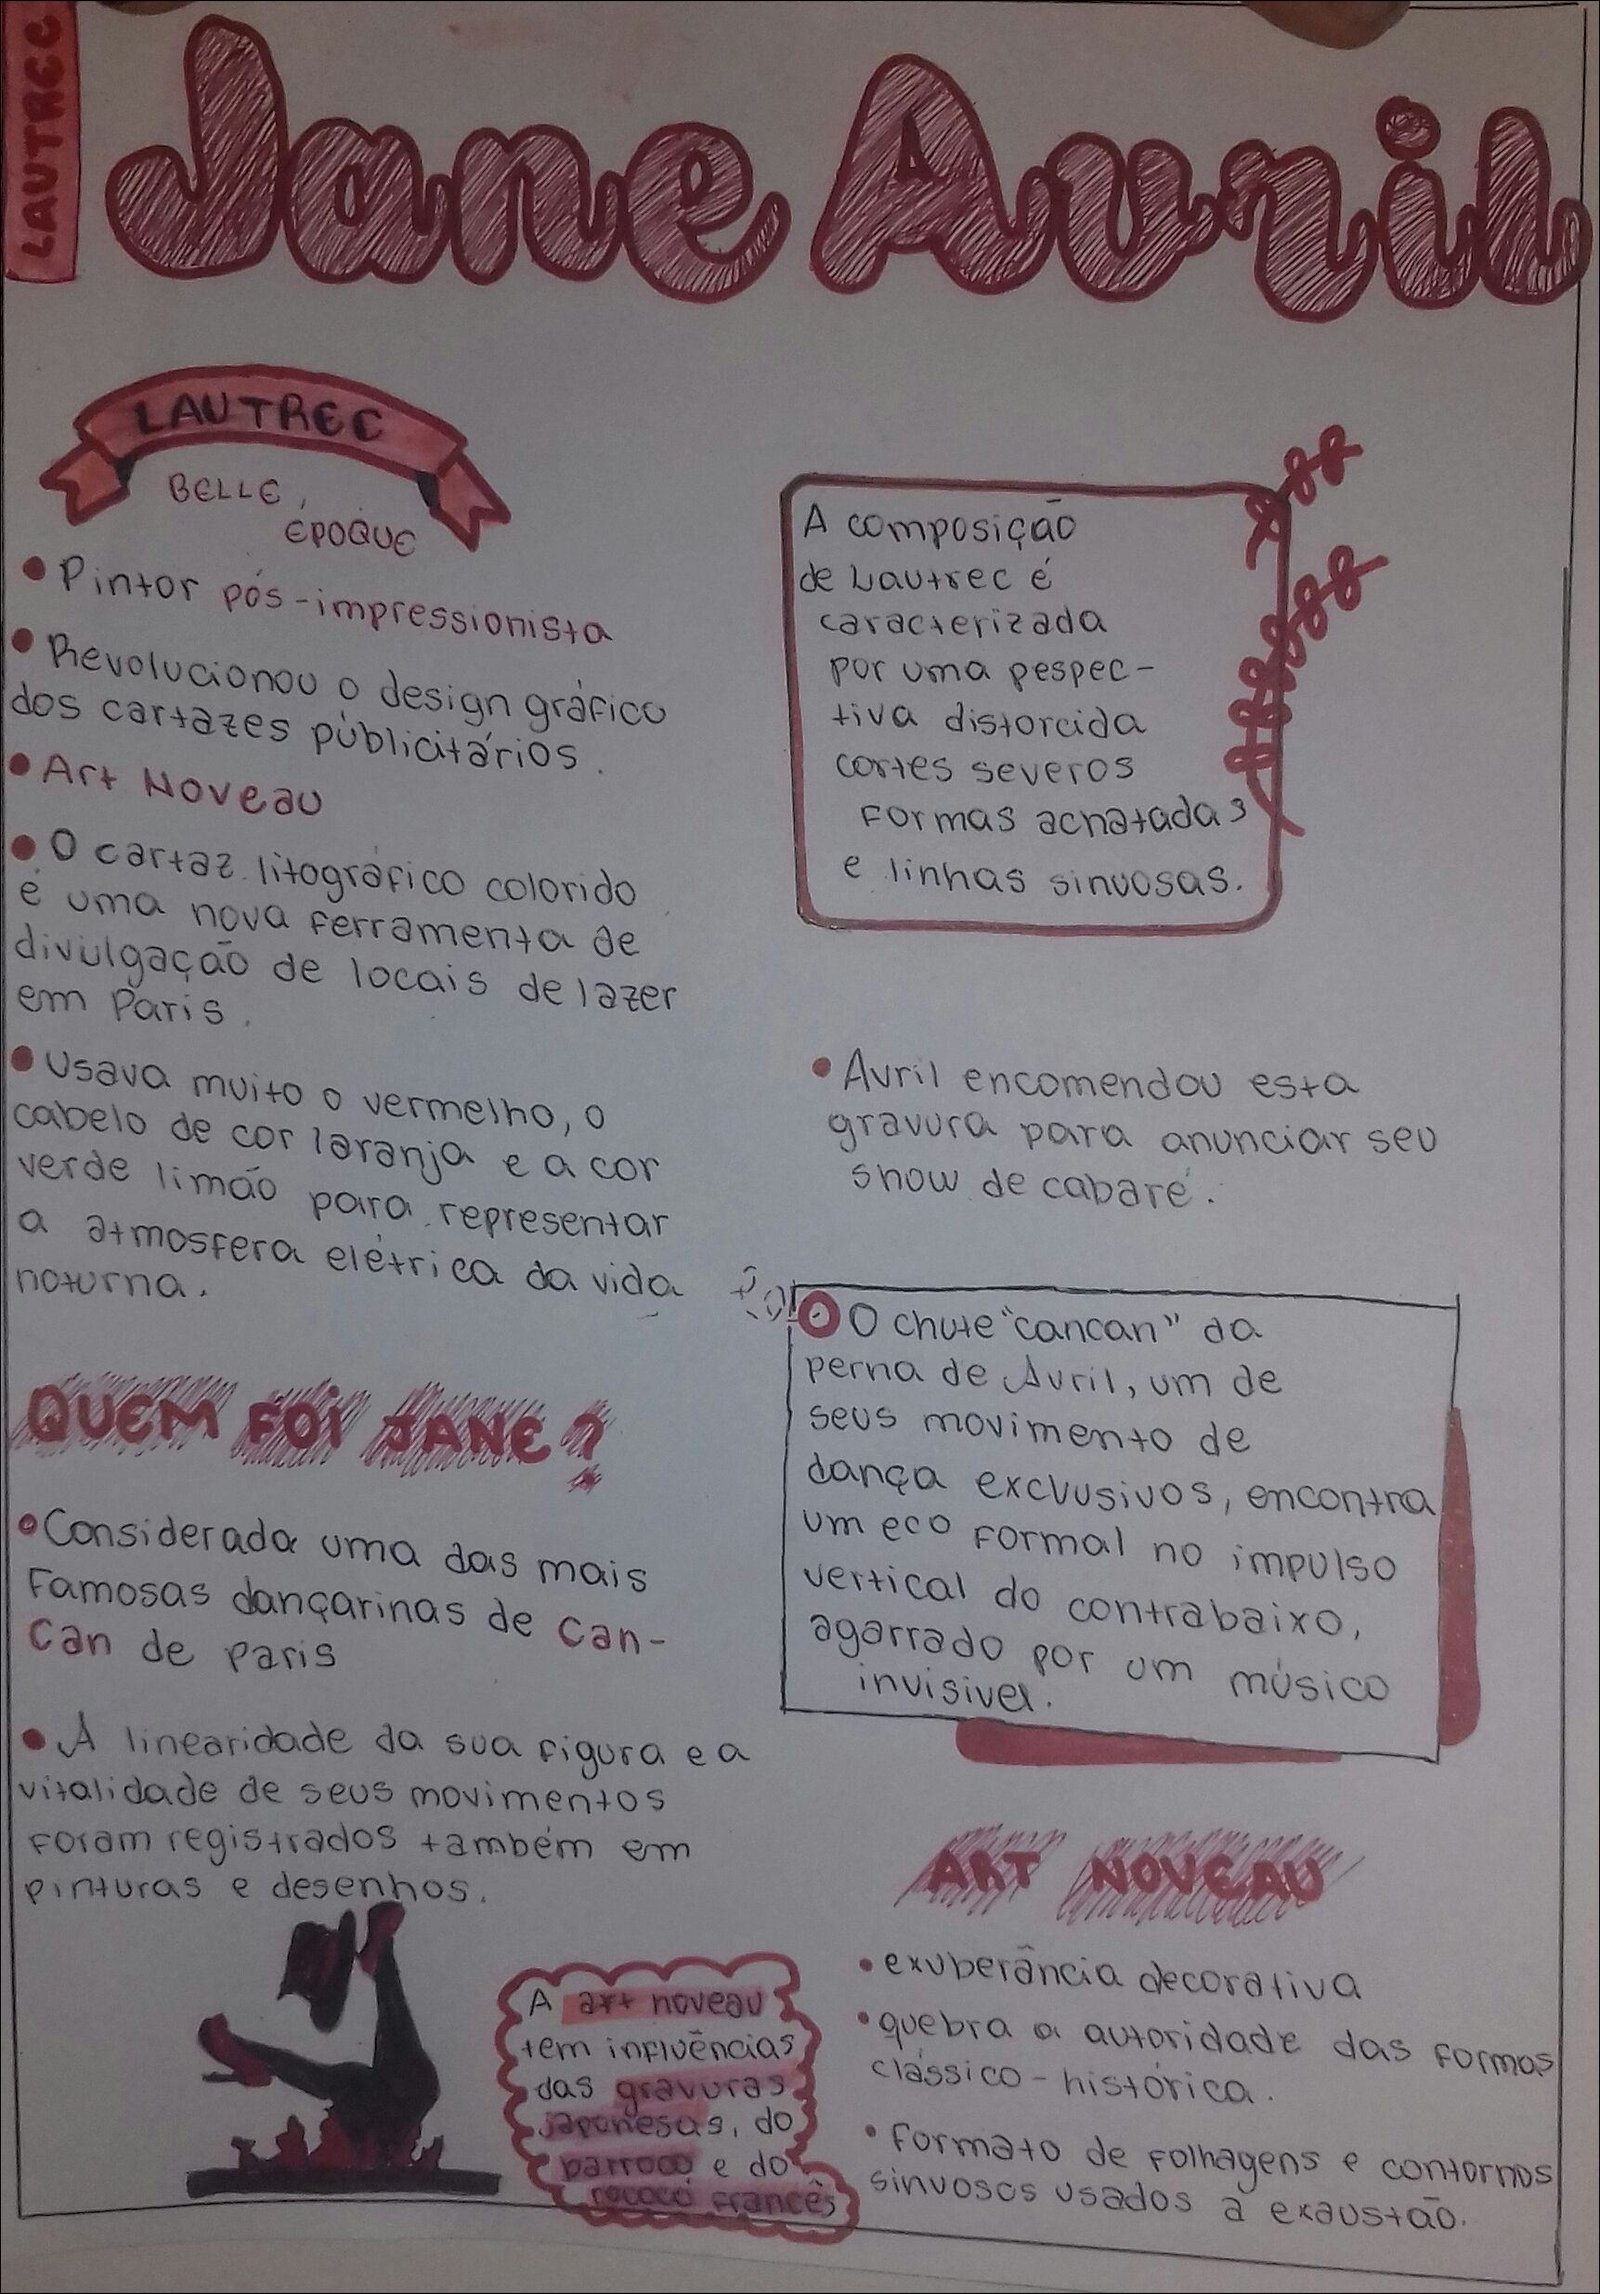 LAUTREC
Jane Avril
LAUTREC
BELLE
ÉPOQUE
• Pintor pós-impressionista
• Revolucionou o design gráfico
dos cartazes públicitários.
• Art Noveau
• O cartaz litográfico colorido
é uma nova ferramenta de
divulgação de locais de lazer
em Paris.
• Usava muito o vermelho, o
cabelo de cor laranja e a cor
verde limão para representar
a atmosfera elétrica da vida
noturna.
QUEM FOI JANE?
• Considerada uma das mais
famosas dançarinas de Can-
Can de Paris
• A linearidade da sua figura e a
vitalidade de seus movimentos
foram registrados também em
pinturas e desenhos.
A art noveau
tem influências
das gravuras
japonesas, do
barroco e do
rococó francês
A composição
de Lautrec é
caracterizada
por uma pespec-
tiva distorcida
cortes severos
formas achatadas
e linhas sinuosas.
• Avril encomendou esta
gravura para anunciar seu
show de cabaré.
O chute "cancan" da
perna de Avril, um de
seus movimento de
dança exclusivos, encontra
um eco formal no impulso
vertical do contrabaixo,
agarrado por um músico
invisivel.
ART NOVEAU
• exuberância decorativa
• quebra a autoridade das formas
clássico-histórica.
• formato de folhagens e contornos
sinuosos usados a exaustão.